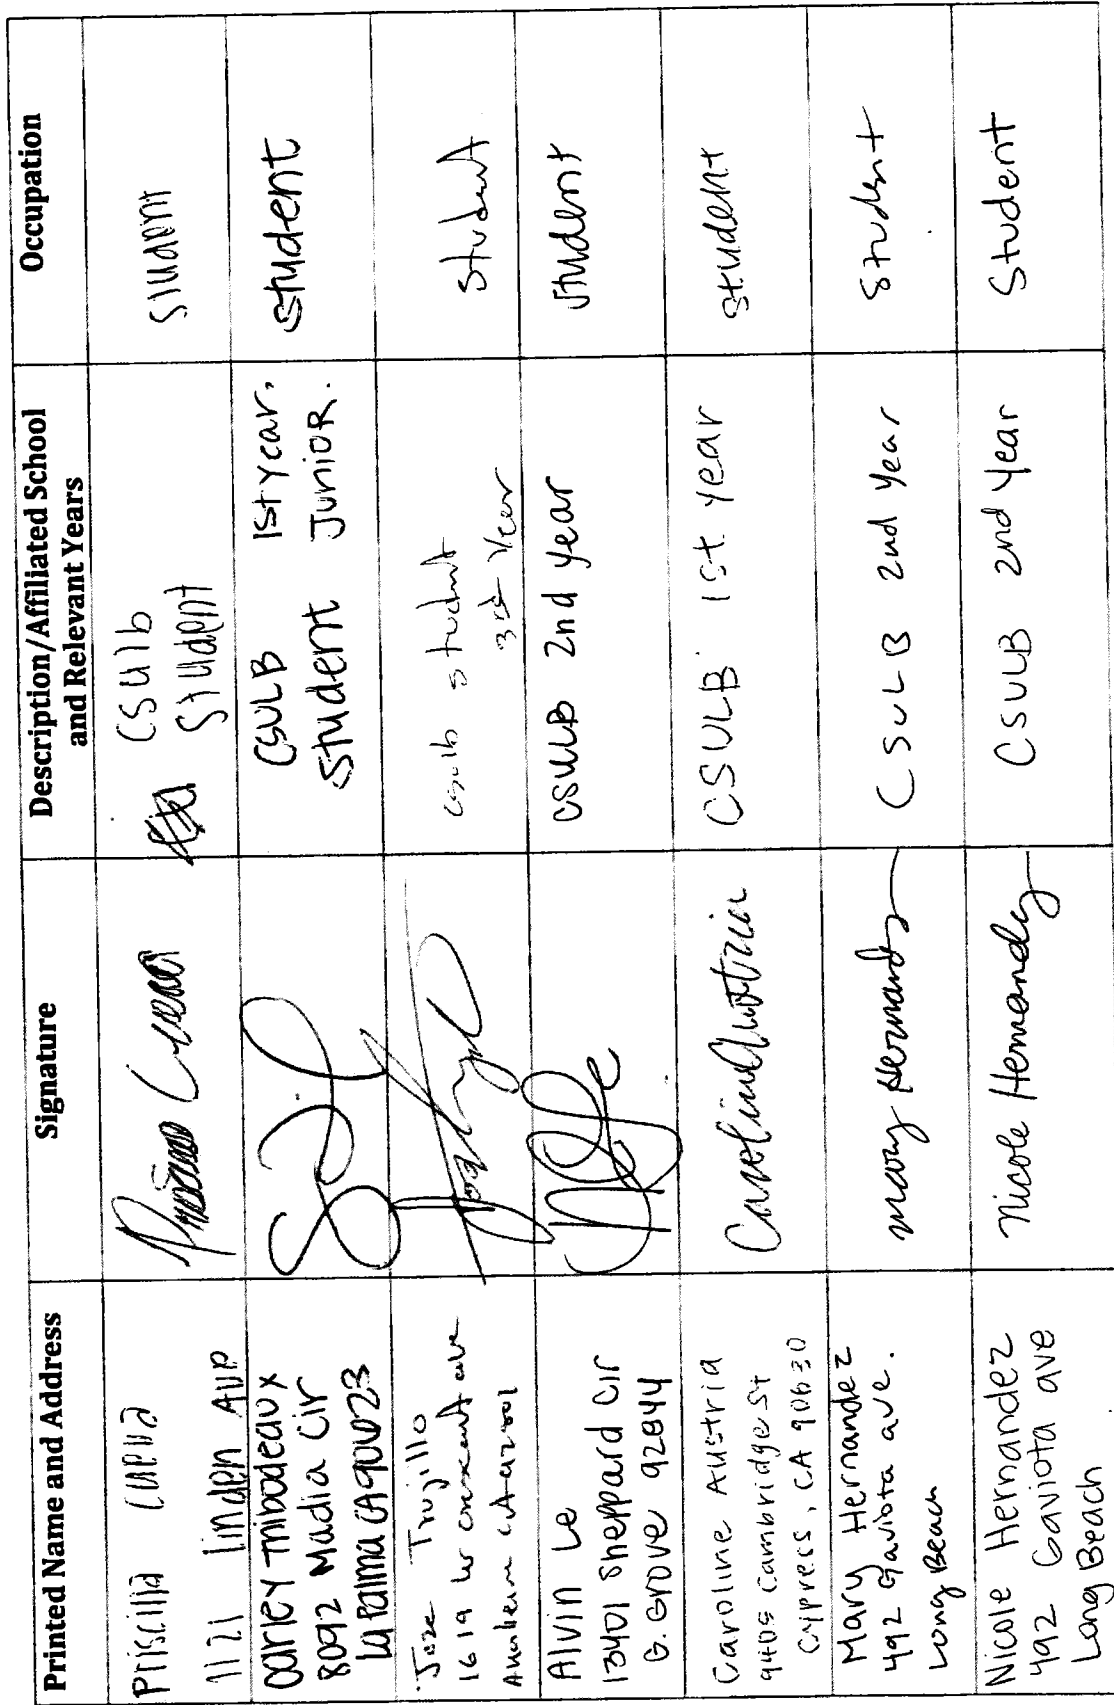 Printed Name and Address
Signature
Description/Affiliated School
and Relevant Years
Occupation
Priscilla Cueva
1121 linden Ave
Csulb
student
student
carley thibodeaux
8092 Madia Cir
La Palma CA 90623
CSULB 1st year.
Student Junior.
student
Jose Trujillo
1619 w crescent ave
Anaheim CA 92801
csulb student
3rd Year
student
Alvin Le
13401 Sheppard Cir
G. Grove 92844
CSULB 2nd year
student
Caroline Austria
9405 Cambridge St
Cypress, CA 90630
Caroline Austria
CSULB 1st year
student
Mary Hernandez
492 Gaviota ave.
Long Beach
Mary Hernandez
CSULB 2nd year
Student
Nicole Hernandez
492 Gaviota ave
Long Beach
Nicole Hernandez
CSULB 2nd year
Student